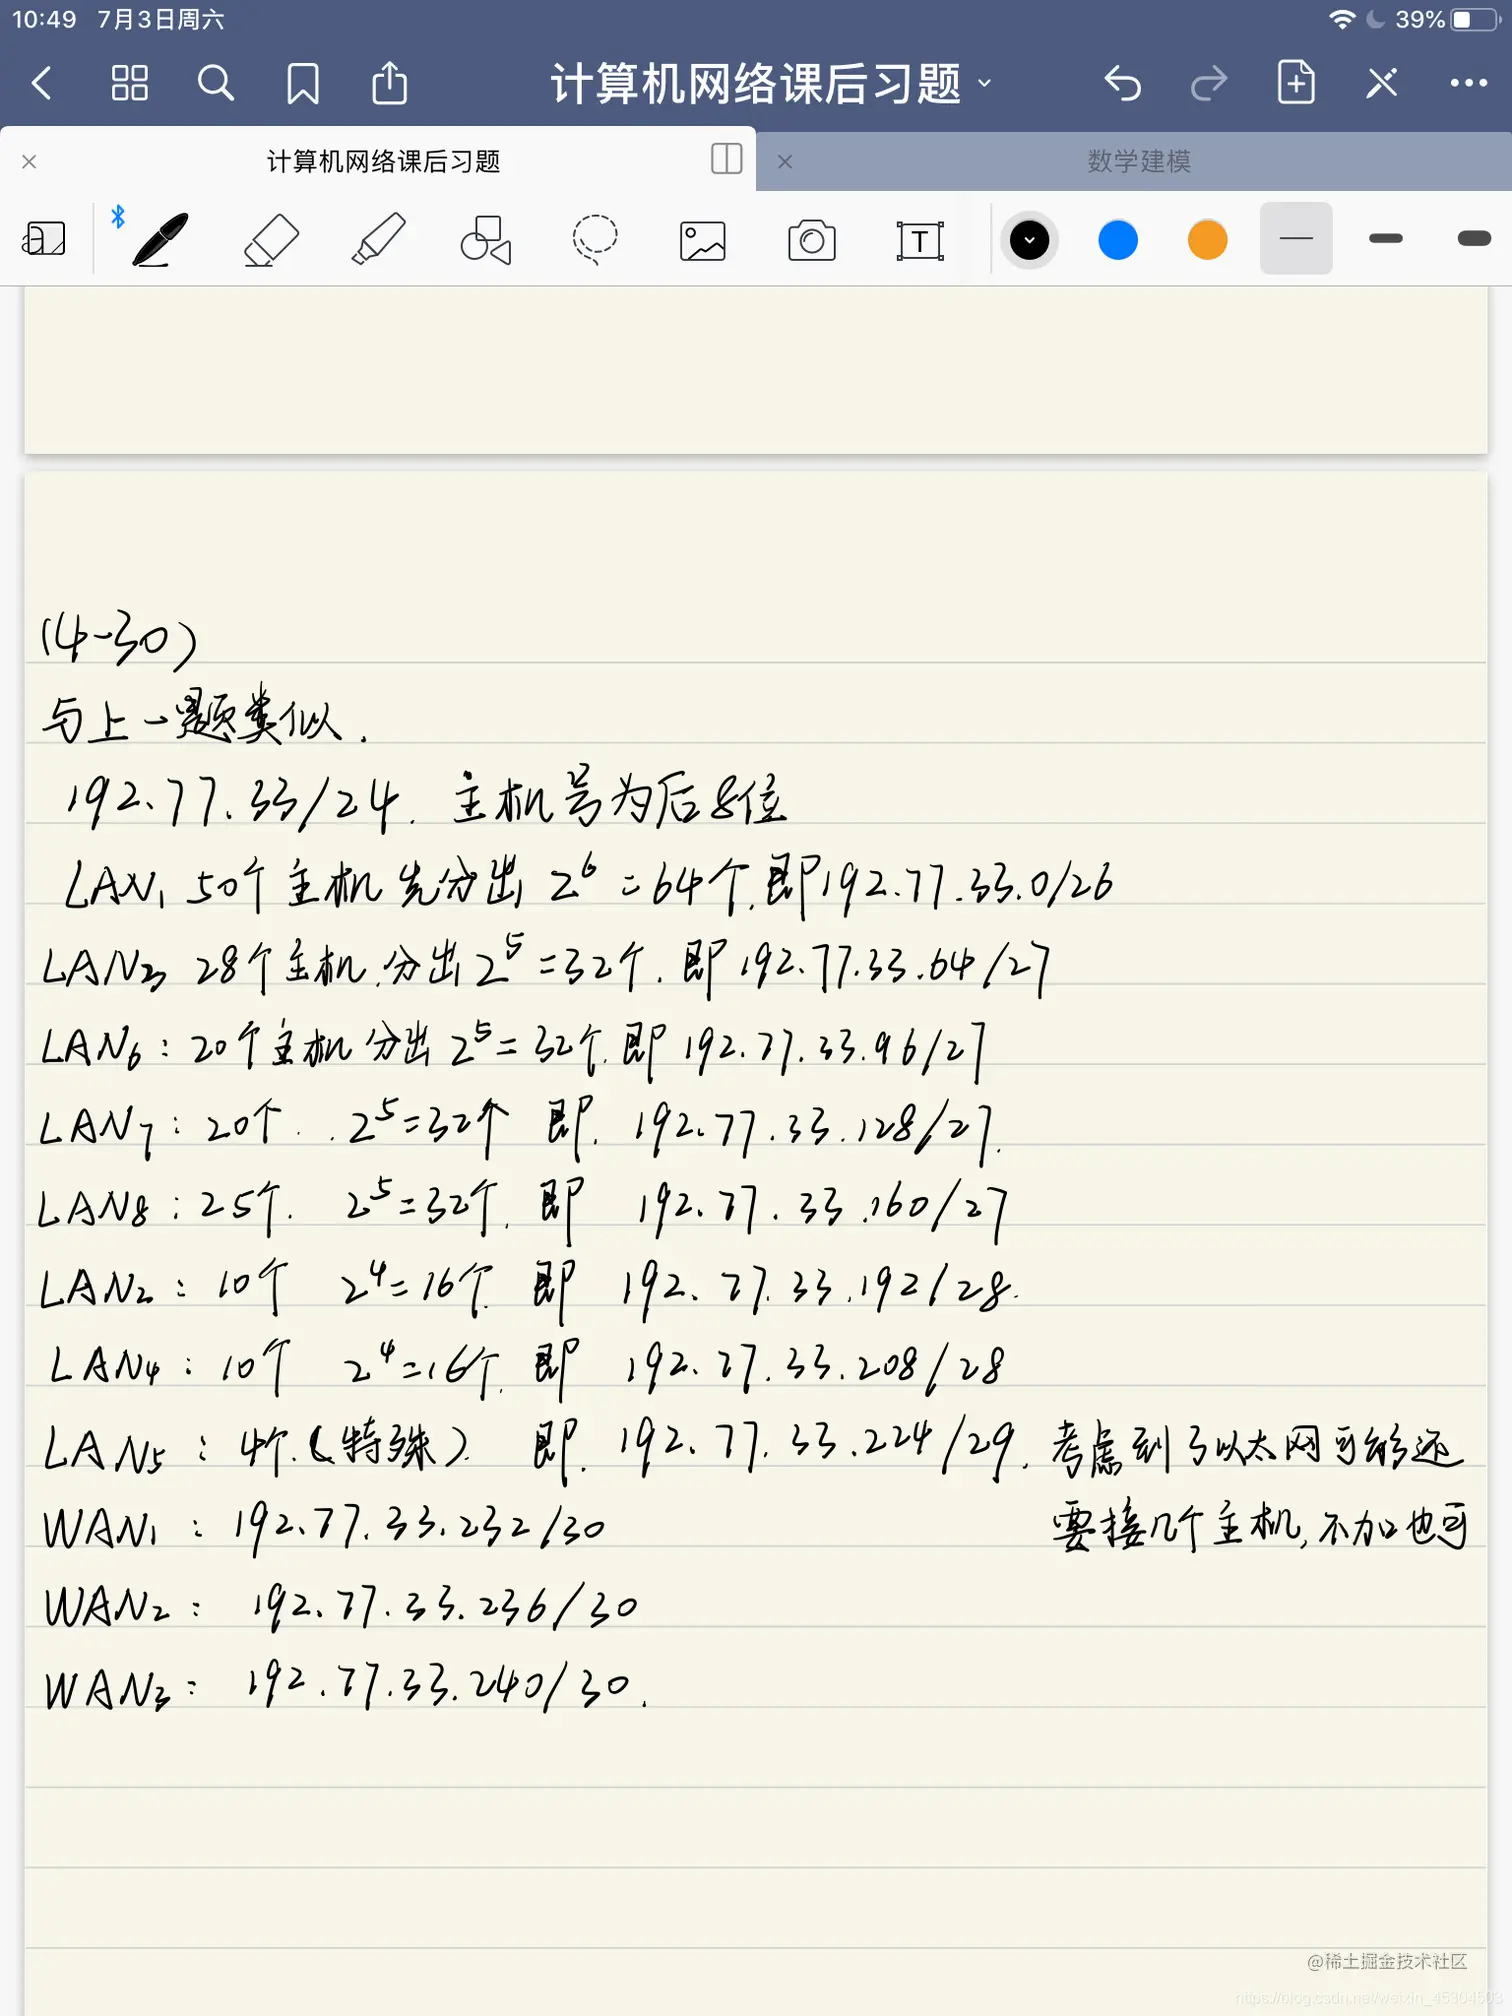 10:49 7月3日周六 39%
计算机网络课后习题
计算机网络课后习题 数学建模
T
(4-30)
与上一题类似.
192.77.33/24. 主机号为后8位
LAN1 50个主机 先分出 2^6=64个,即192.77.33.0/26
LAN3 28个主机,分出2^5=32个. 即 192.77.33.64/27
LAN6: 20个主机 分出 2^5=32个.即 192.77.33.96/27
LAN7: 20个. . 2^5=32个 即. 192.77.33.128/27.
LAN8: 25个. 2^5=32个. 即 192.77.33.160/27
LAN2: 10个 2^4=16个. 即 192.77.33.192/28.
LAN4: 10个 2^4=16个. 即 192.77.33.208/28
LAN5: 4个.(特殊). 即. 192.77.33.224/29. 考虑到了以太网可能还
WAN1: 192.77.33.232/30 要接几个主机,不加也可
WAN2: 192.77.33.236/30
WAN3: 192.77.33.240/30.
@稀土掘金技术社区
https://blog.csdn.net/weixin_45304503